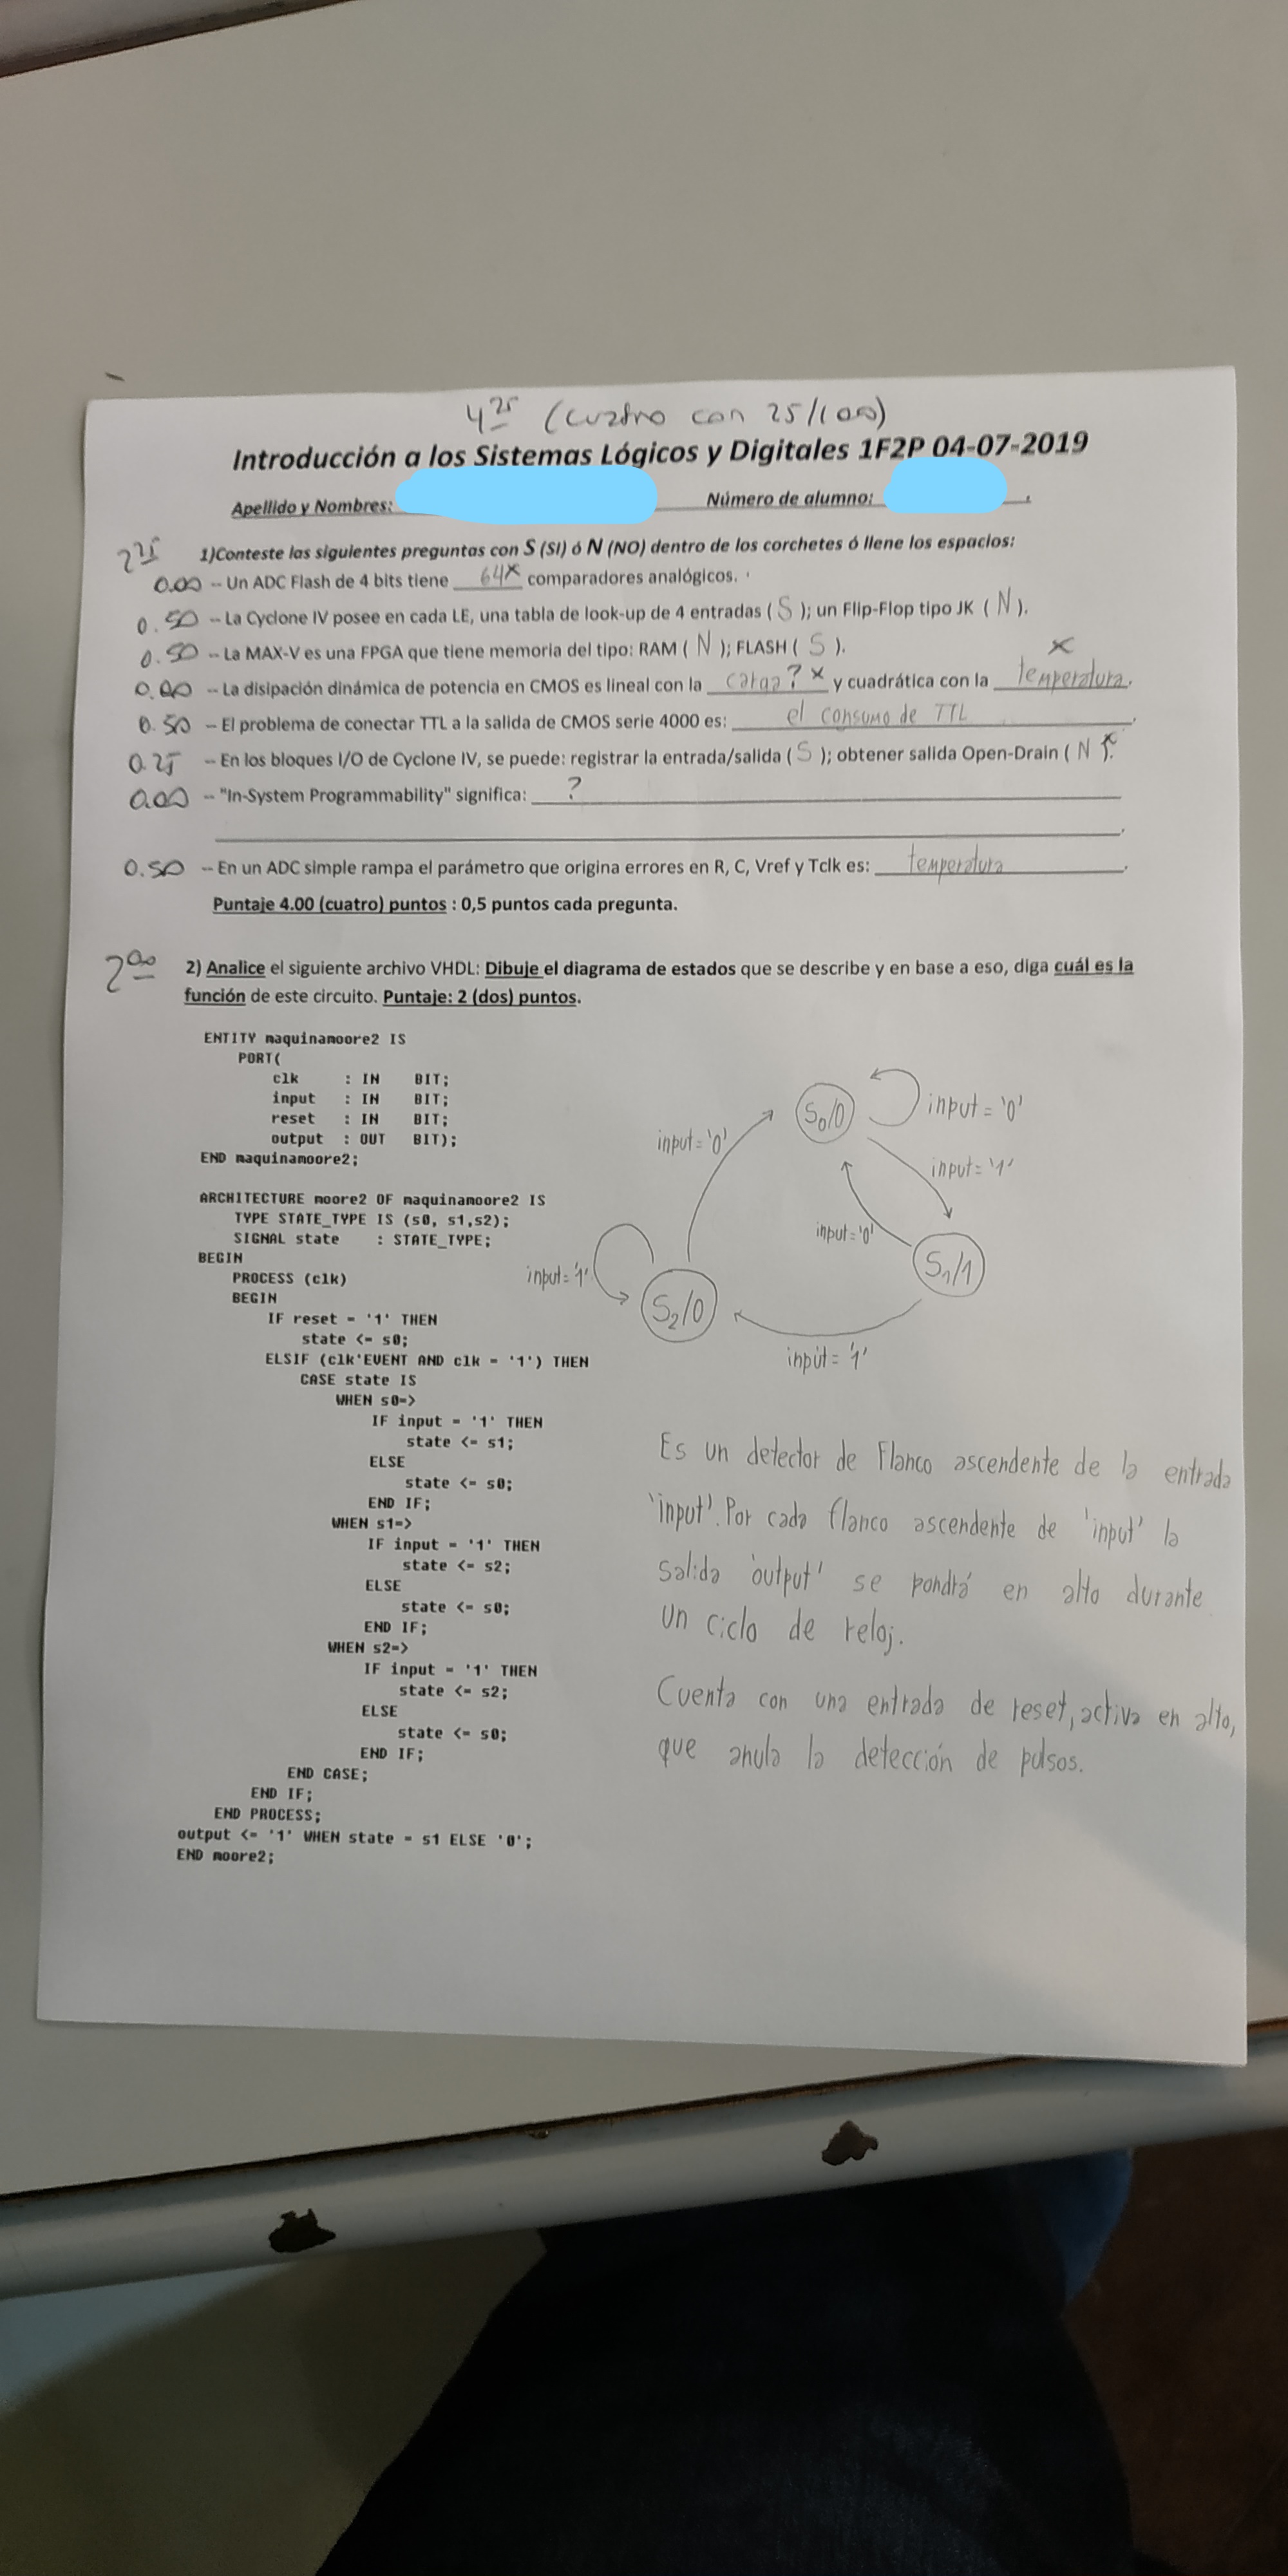 4 25 (cuatro con 25/100)
Introducción a los Sistemas Lógicos y Digitales 1F2P 04-07-2019
Apellido y Nombres: Número de alumno: .
2 25 1)Conteste las siguientes preguntas con S (SI) ó N (NO) dentro de los corchetes ó llene los espacios:
0.00 -- Un ADC Flash de 4 bits tiene 64 x comparadores analógicos.
0.50 -- La Cyclone IV posee en cada LE, una tabla de look-up de 4 entradas ( S ); un Flip-Flop tipo JK ( N ).
0.50 -- La MAX-V es una FPGA que tiene memoria del tipo: RAM ( N ); FLASH ( S ).
0.00 -- La disipación dinámica de potencia en CMOS es lineal con la carga? x y cuadrática con la temperatura. x
0.50 -- El problema de conectar TTL a la salida de CMOS serie 4000 es: el consumo de TTL.
0.25 -- En los bloques I/O de Cyclone IV, se puede: registrar la entrada/salida ( S ); obtener salida Open-Drain ( N x ).
0.00 -- "In-System Programmability" significa: ?
.
0.50 -- En un ADC simple rampa el parámetro que origina errores en R, C, Vref y Tclk es: temperatura.
Puntaje 4.00 (cuatro) puntos : 0,5 puntos cada pregunta.
2 00 2) Analice el siguiente archivo VHDL: Dibuje el diagrama de estados que se describe y en base a eso, diga cuál es la
función de este circuito. Puntaje: 2 (dos) puntos.
ENTITY maquinamoore2 IS
PORT(
clk : IN BIT;
input : IN BIT;
reset : IN BIT;
output : OUT BIT);
END maquinamoore2;
ARCHITECTURE moore2 OF maquinamoore2 IS
TYPE STATE_TYPE IS (s0, s1,s2);
SIGNAL state : STATE_TYPE;
BEGIN
PROCESS (clk)
BEGIN
IF reset = '1' THEN
state <= s0;
ELSIF (clk'EVENT AND clk = '1') THEN
CASE state IS
WHEN s0=>
IF input = '1' THEN
state <= s1;
ELSE
state <= s0;
END IF;
WHEN s1=>
IF input = '1' THEN
state <= s2;
ELSE
state <= s0;
END IF;
WHEN s2=>
IF input = '1' THEN
state <= s2;
ELSE
state <= s0;
END IF;
END CASE;
END IF;
END PROCESS;
output <= '1' WHEN state = s1 ELSE '0';
END moore2;
S0/0
input = '0'
input = '0'
input = '1'
input = '0'
S1/1
input = '1'
S2/0
input = '1'
Es un detector de Flanco ascendente de la entrada
'input'. Por cada flanco ascendente de 'input' la
salida 'output' se pondrá en alto durante
un ciclo de reloj.
Cuenta con una entrada de reset, activa en alto,
que anula la detección de pulsos.